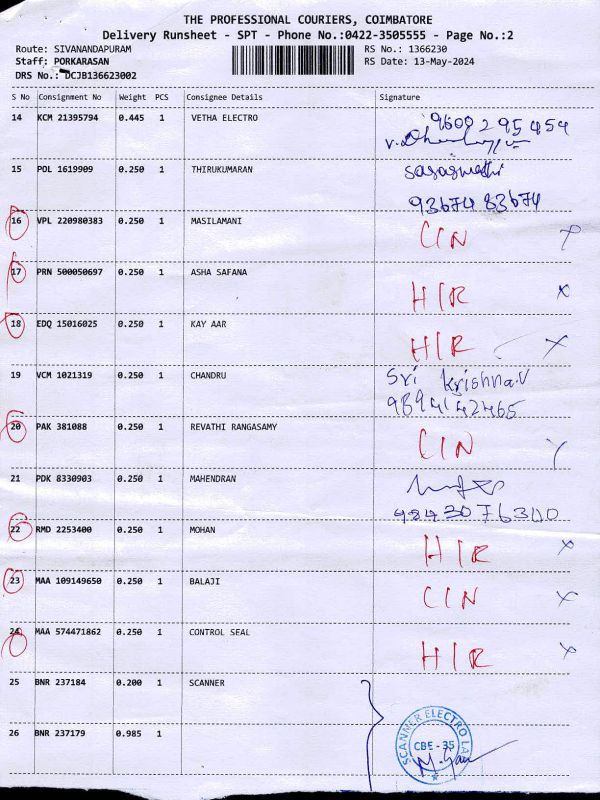 THE PROFESSIONAL COURIERS, COIMBATORE
Delivery Runsheet - SPT - Phone No.:0422-3505555 - Page No.:2
Route: SIVANANDAPURAM RS No.: 1366230
Staff: PORKARASAN RS Date: 13-May-2024
DRS No.: DCJB136623002
S No Consignment No Weight PCS Consignee Details Signature
14 KCM 21395794 0.445 1 VETHA ELECTRO 9600295454
15 POL 1619909 0.250 1 THIRUKUMARAN Sasaswathi
93674 83674
16 VPL 220980383 0.250 1 MASILAMANI CIN X
17 PRN 500050697 0.250 1 ASHA SAFANA HIR X
18 EDQ 15016025 0.250 1 KAY AAR HIR X
19 VCM 1021319 0.250 1 CHANDRU Sri Krishna.V
9894142465
20 PAK 381088 0.250 1 REVATHI RANGASAMY CIN
21 PDK 8330903 0.250 1 MAHENDRAN
9843076340
22 RMD 2253400 0.250 1 MOHAN HIR X
23 MAA 109149650 0.250 1 BALAJI CIN X
24 MAA 574471862 0.250 1 CONTROL SEAL HIR X
25 BNR 237184 0.200 1 SCANNER
26 BNR 237179 0.985 1
SCANNER ELECTRO LAB
CBE - 35